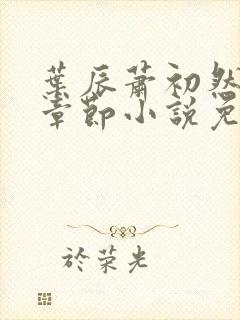 葉辰蕭初然
章節小說免
於荣光